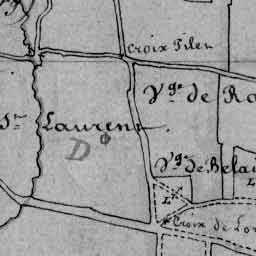 Croix Pilet
Vge de Ro
St Laurent
D
Vge de Belai
L
Croix de Lor